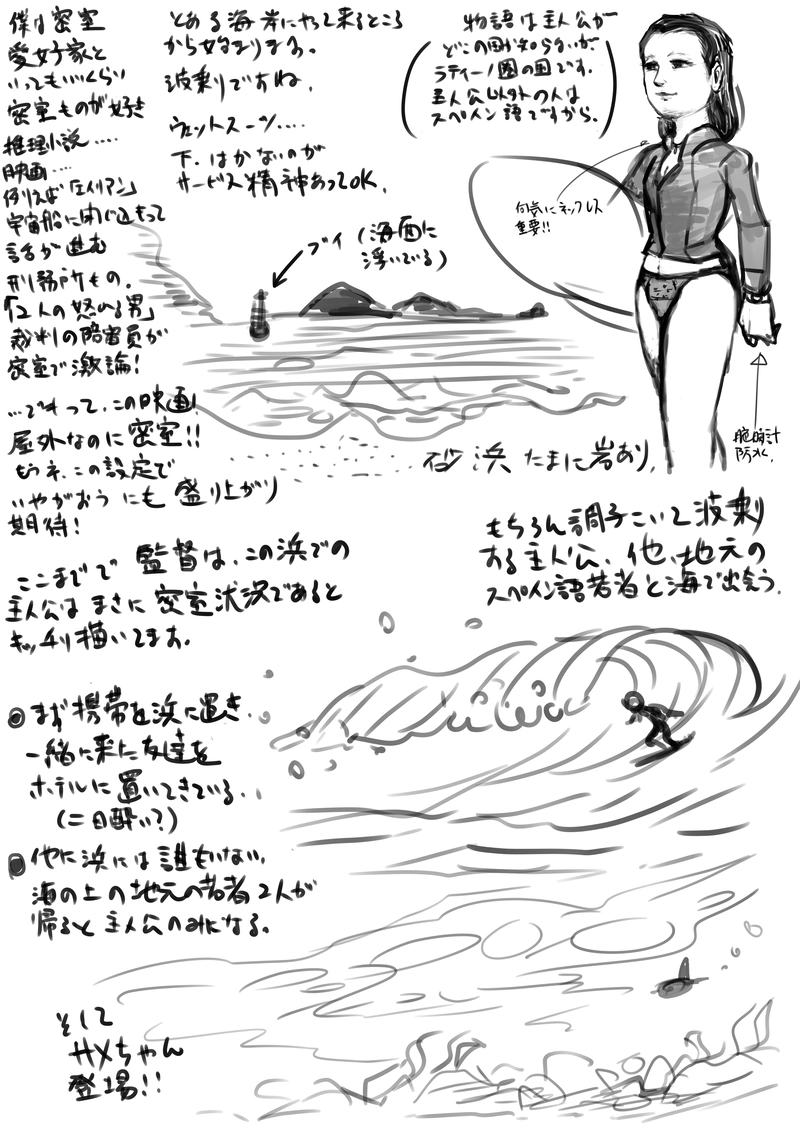 僕は密室
愛好家と
いってもいいくらい
密室ものが好き
推理小説‥‥
映画‥‥
例えば「エイリアン」
宇宙船に閉じ込もって
話が進む
刑務所もの。
「12人の怒れる男」
裁判の陪審員が
密室で激論!
…でもって、この映画!
屋外なのに密室!!
もうネ、この設定で
いやがおうにも盛り上がり
期待!
ここまでで監督は、この浜での
主人公はまさに密室状況であると
キッチリ描いてます。
まず携帯を浜に置き、
一緒に来た友達を
ホテルに置いてきている‥
(二日酔い?)
他に浜には誰もいない。
海の上の地元の若者2人が
帰ると主人公のみになる。
そして
サメちゃん
登場!!
とある海岸にやって来るところ
から始まります。
波乗りですね。
ウェットスーツ‥‥
下、はかないのが
サービス精神あってOK。
物語は主人公が
(どこの国か知らないが、
ラティーノ圏の国です。
主人公以外の人は
スペイン語ですから。)
何気にネックレス
重要!!
ブイ(海面に
浮いている)
腕時計
防水。
砂浜 たまに岩あり。
もちろん調子こいて波乗り
する主人公、他、地元の
スペイン語若者と海で出会う。